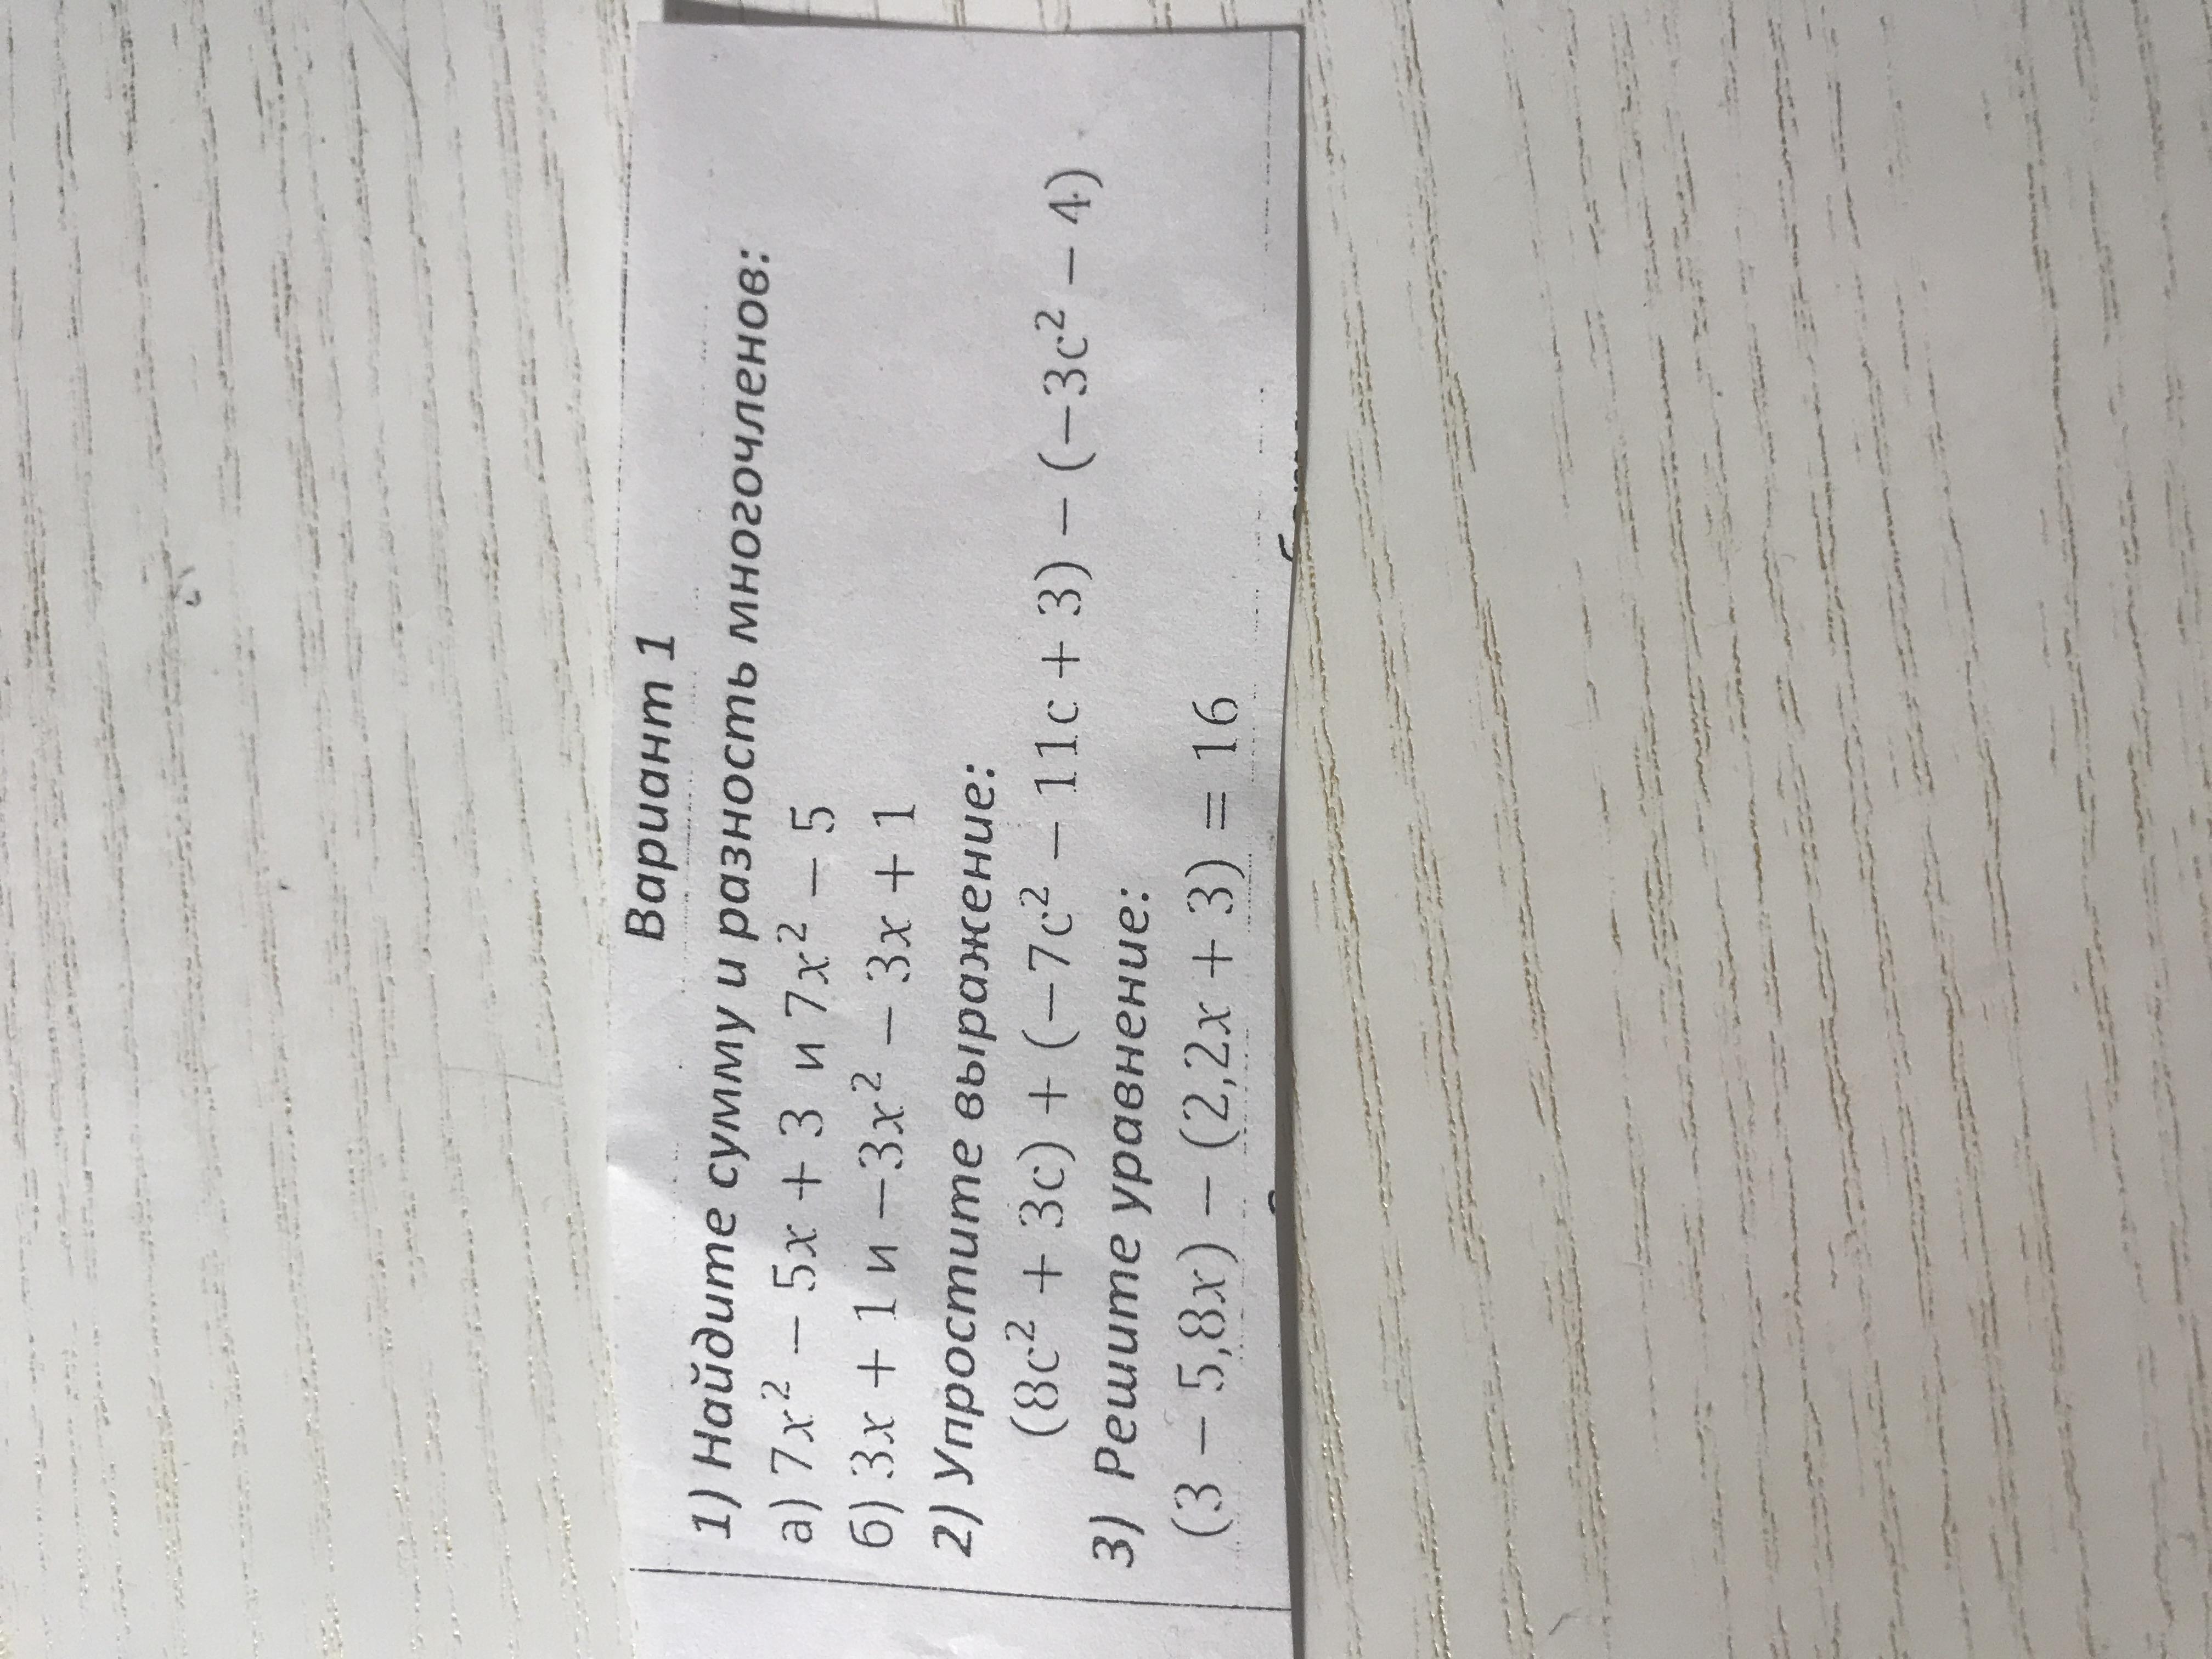 Вариант 1
1) Найдите сумму и разность многочленов:
а) 7x² − 5x + 3 и 7x² − 5
б) 3x + 1 и −3x² − 3x + 1
2) Упростите выражение:
(8c² + 3c) + (−7c² − 11c + 3) − (−3c² − 4)
3) Решите уравнение:
(3 − 5,8x) − (2,2x + 3) = 16